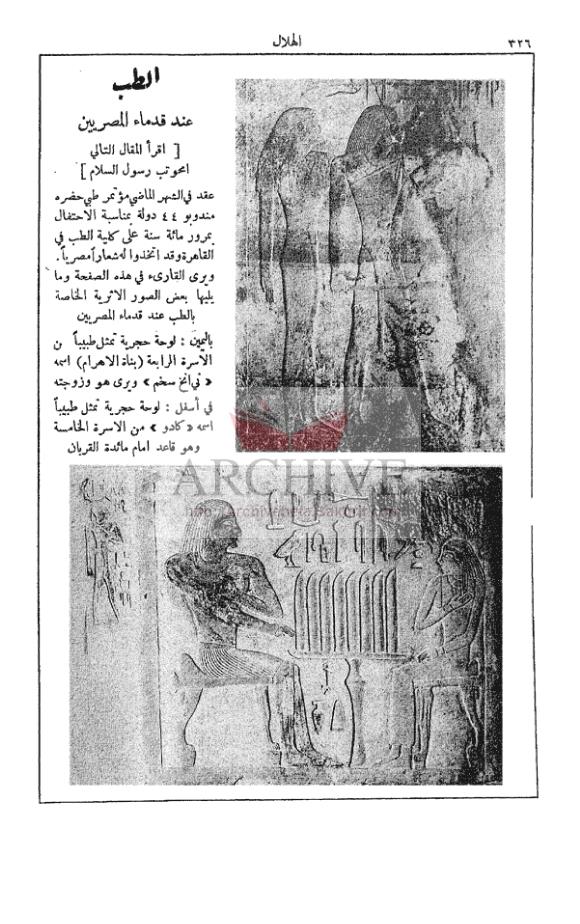 ٣٢٦
الهلال
الطب
عند قدماء المصريين
[ اقرأ المقال التالي
امحوتب رسول السلام ]
عقد في الشهر الماضي مؤتمر طبي حضره
مندوبو ٤٤ دولة بمناسبة الاحتفال
بمرور مائة سنة على كلية الطب في
القاهرة وقد اتخذوا له شعاراً مصرياً.
ويرى القارىء في هذه الصفحة وما
يليها بعض الصور الاثرية الخاصة
بالطب عند قدماء المصريين
باليمين : لوحة حجرية تمثل طبيباً من
الاسرة الرابعة (بناة الاهرام) اسمه
« ني انخ سخم » ويرى هو وزوجته
في أسفل : لوحة حجرية تمثل طبيباً
اسمه « كادو » من الاسرة الخامسة
وهو قاعد امام مائدة القربان
ARCHIVE
http://archivebeta.Sakhrit.com